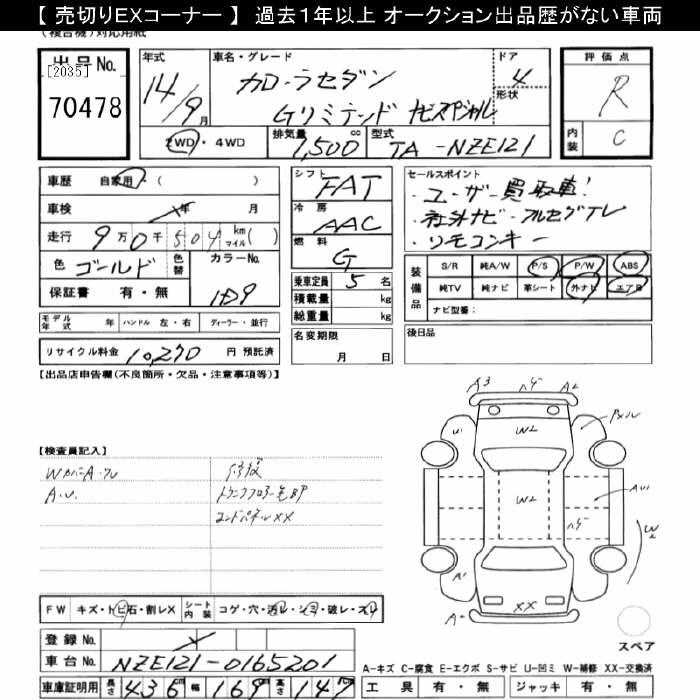 【 売切りEXコーナー 】 過去1年以上 オークション出品歴がない車両
(複合機)対応用紙
出品No.
[2035]
70478
年式
14/9月
車名・グレード
カローラセダン
Gリミテッド ナビスペシャル
ドア
4
形状
評価点
R
内装
C
2WD・4WD
排気量
1,500 cc
型式
TA-NZE121
車歴 自家用・( )
車検 年 月
走行 9万0千504 km マイル( )
色 ゴールド 色替 カラーNo.
保証書 有・無
1E9
モデル年式 年 ハンドル 左・右 ディーラー・並行
リサイクル料金 10,270 円 預託済
シフト
FAT
冷房
AAC
燃料
G
乗車定員 5 名
積載量 kg
総重量 kg
名変期限
月 日
セールスポイント
・ユーザー買取車!
・社外ナビ・フルセグTV
・リモコンキー
装備品
S/R 純A/W P/S P/W ABS
純TV 純ナビ 革シート 外ナビ エアB
ナビ型番:
後日品
【出品店申告欄(不良箇所・欠品・注意事項等)】
【検査員記入】
A.U.
修復
トランクフロアー亀BP
エンドパネルXX
A3 ハゲ A2
U1 W2
W2 AU1
ハゲ W2
A1
A2 XX
スペア
FW キズ・トビ石・割レX シート内装 コゲ・穴・汚レ・シミ・破レ・スレ
登録No.
車台No. NZE121-0165201
車庫証明用 長さ 436cm 幅 169cm 高さ 147cm
A-キズ C-腐食 E-エクボ S-サビ U-凹ミ W-補修 XX-交換済
工具 有・無 ジャッキ 有・無